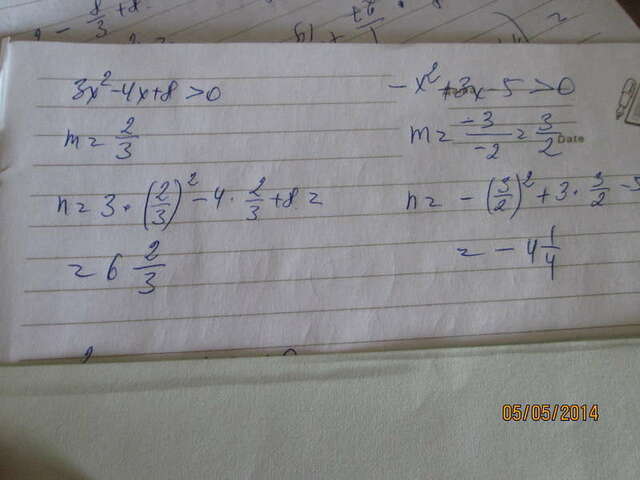 3x²-4x+8>0
m = 2/3
n = 3·(2/3)²-4·2/3+8=
= 6 2/3
-x²+3x-5>0
m = -3/-2 = 3/2
Date
n = -(3/2)²+3·3/2-5
= -4 1/4
05/05/2014